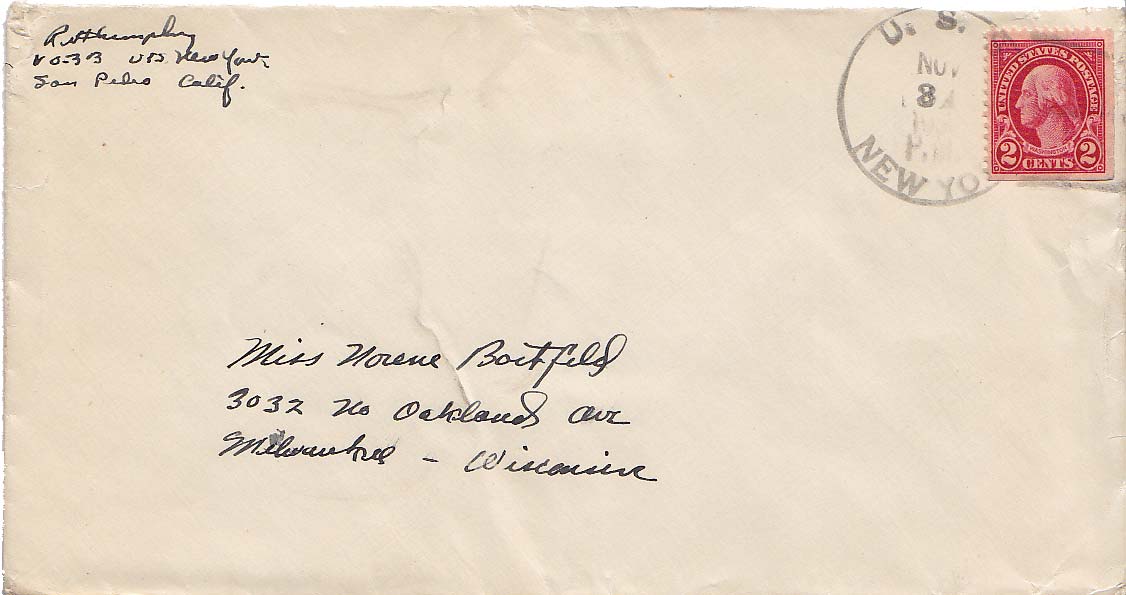 R H Humphrey
VO-3B USS New York
San Pedro Calif.
U. S.
NOV
8
P.M.
NEW YO
UNITED STATES POSTAGE
WASHINGTON
2 CENTS 2
Miss Norene Boitfeld
3032 No Oakland Ave
Milwaukee - Wisconsin